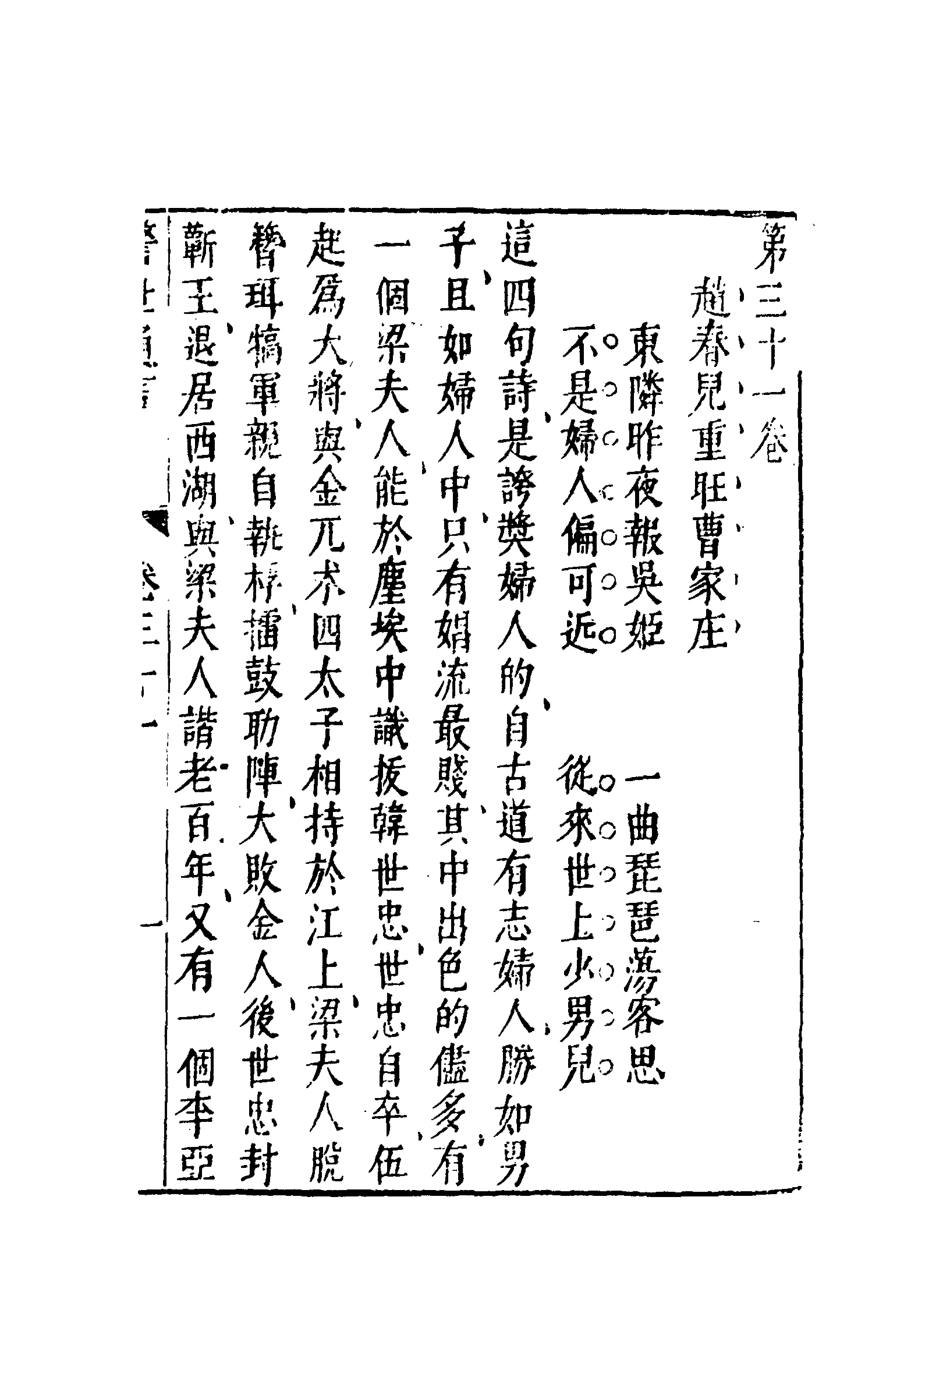 第三十一卷
趙春兒重旺曹家庄
東隣昨夜報吳姬　一曲琵琶蕩客思
不是婦人偏可近　從來世上少男兒
這四句詩是誇獎婦人的自古道有志婦人勝如男
子且如婦人中只有娼流最賤其中出色的儘多有
一個梁夫人能於塵埃中識拔韓世忠世忠自卒伍
起爲大將與金兀朮四太子相持於江上梁夫人脫
簪珥犒軍親自執桴擂鼓助陣大敗金人後世忠封
蘄王退居西湖與梁夫人諧老百年又有一個李亞
警世通言　卷三十一　一